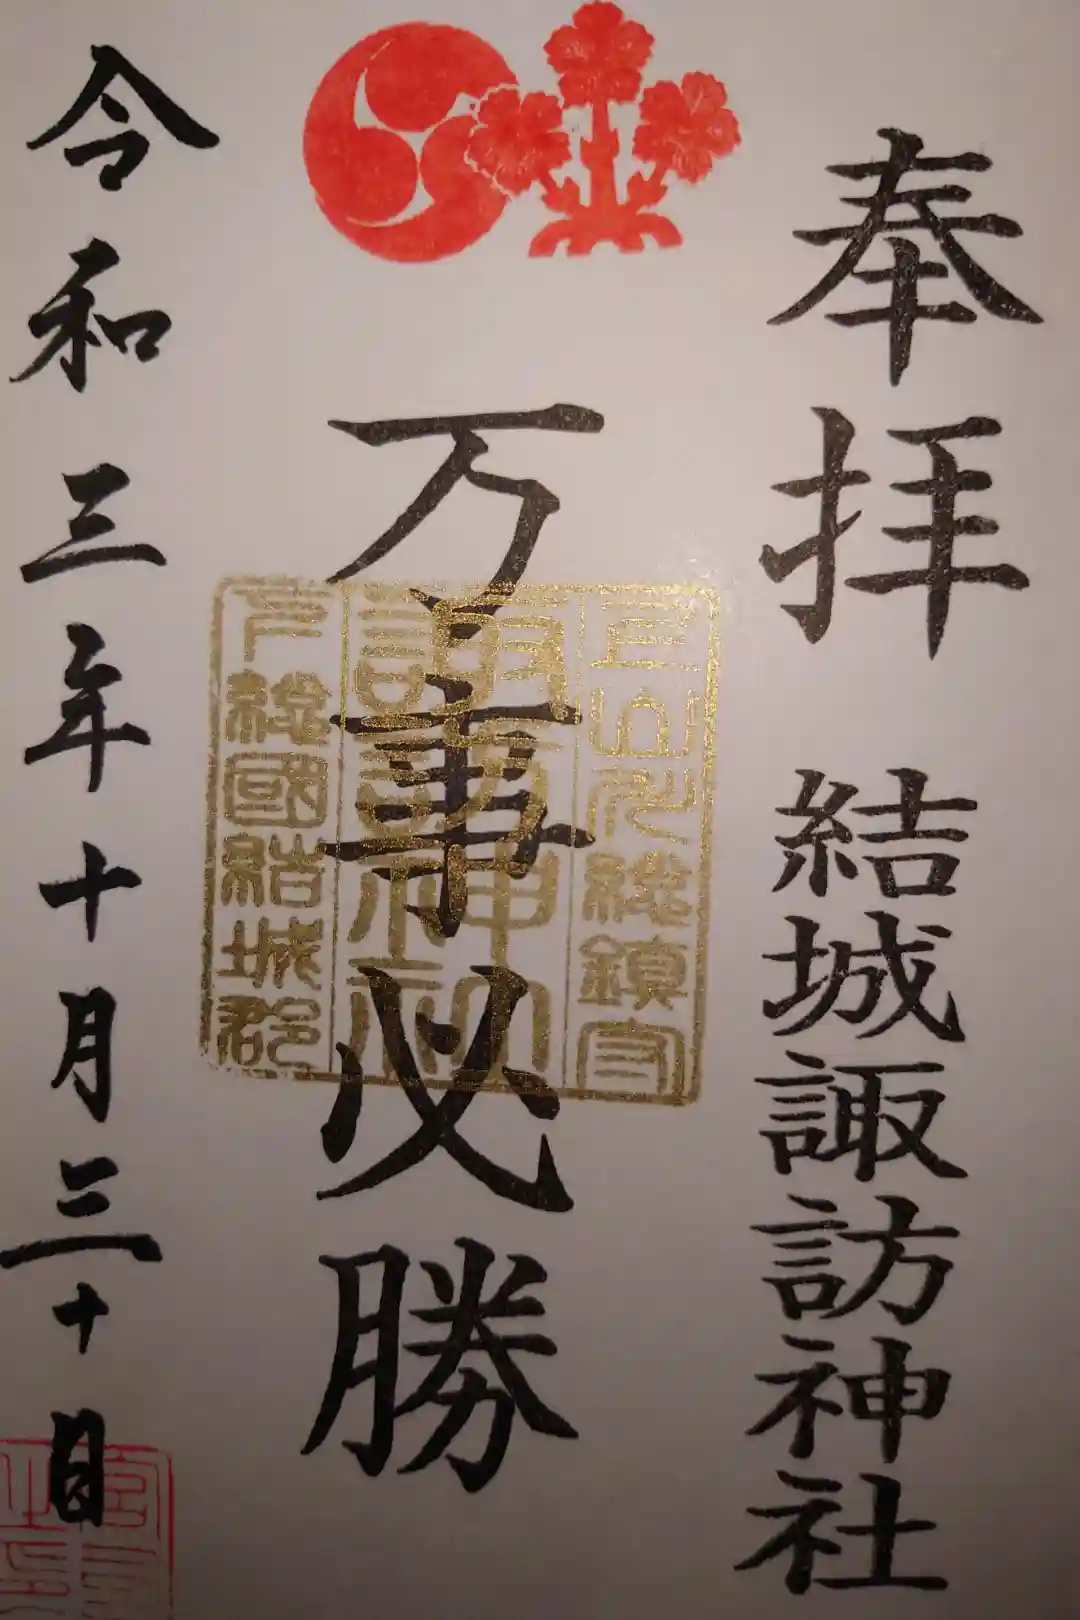 奉拝 結城諏訪神社
万事必勝
総鎮守
諏訪神社
下総國結城郡
令和三年十月三十日